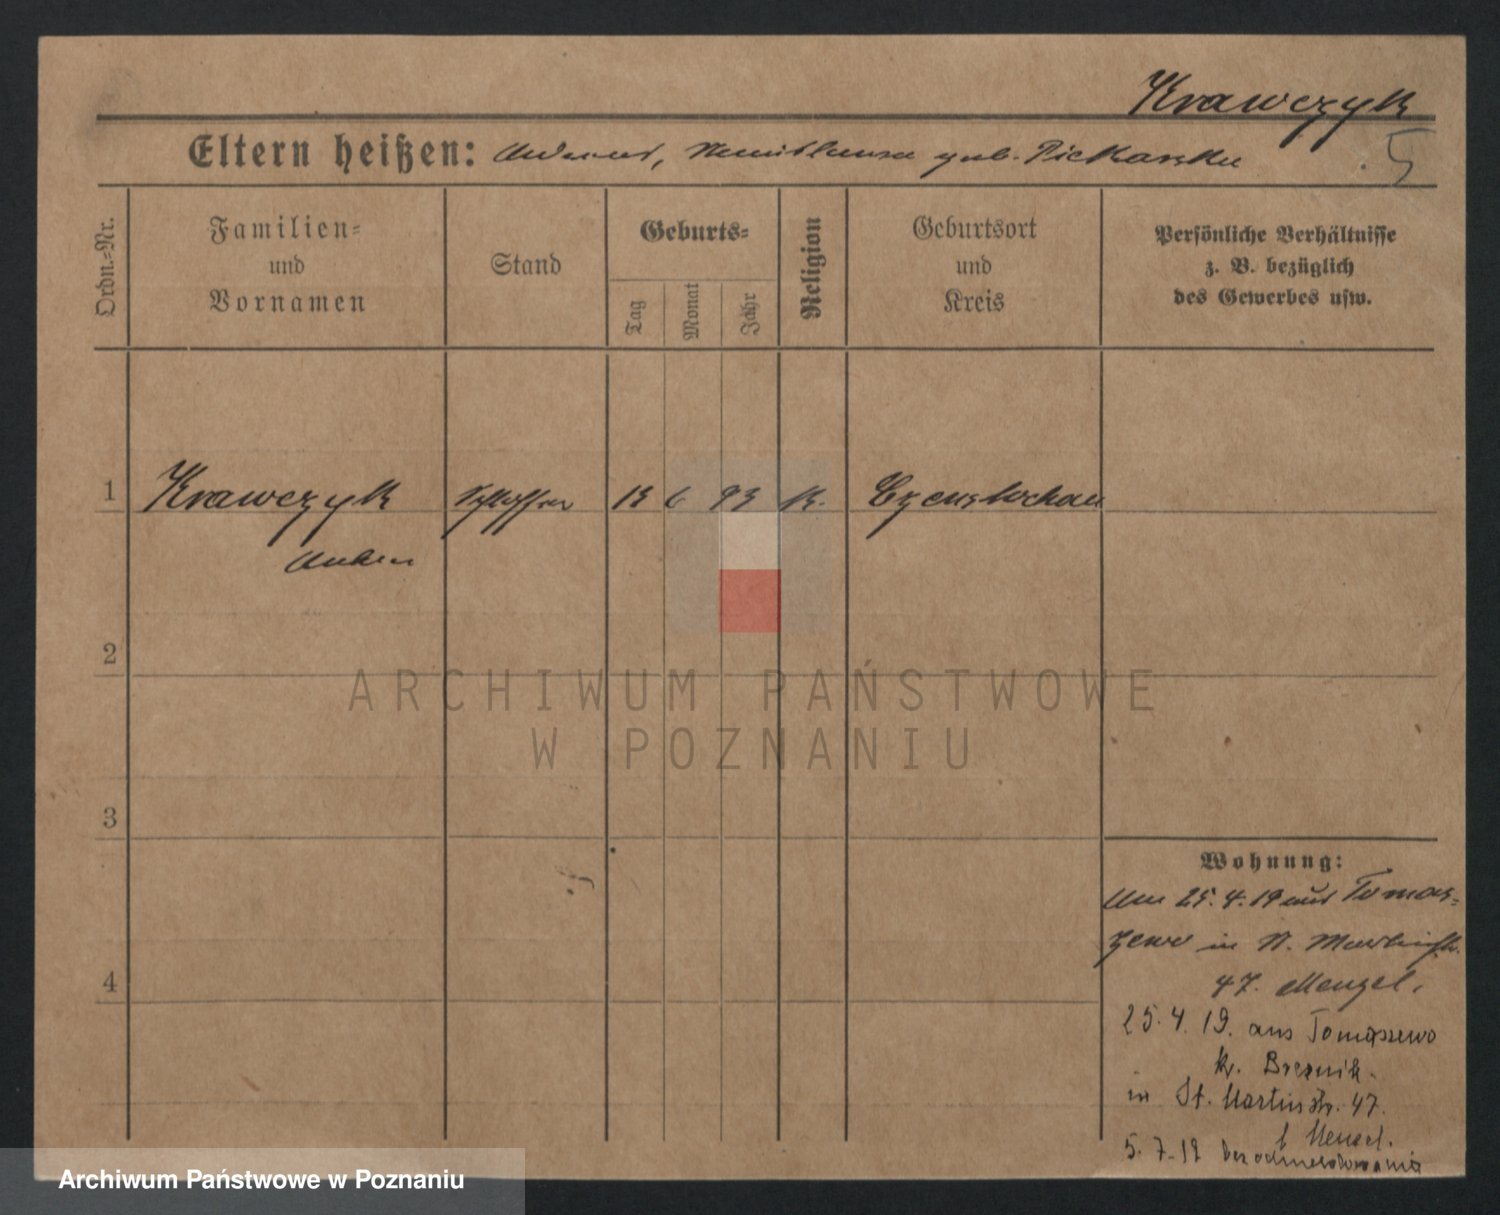 Krawczyk
Eltern heißen: geb. Piekarska
5
Ordn.-Nr.
Familien-
und
Vornamen
Stand
Geburts-
Tag
Monat
Jahr
Religion
Geburtsort
und
Kreis
Persönliche Verhältnisse
z. B. bezüglich
des Gewerbes usw.
1 Krawczyk Schlosser 13 6 93 K. Czenstochau
2
3
4
Wohnung:
Am 25.4.19 aus Tomas-
zewo in St. Martinstr.
47. Menzel.
25.4.19. aus Tomaszewo
kr.
in St. Martinstr. 47.
5.7.19 bez odmeldowania
ARCHIWUM PAŃSTWOWE
W POZNANIU
Archiwum Państwowe w Poznaniu